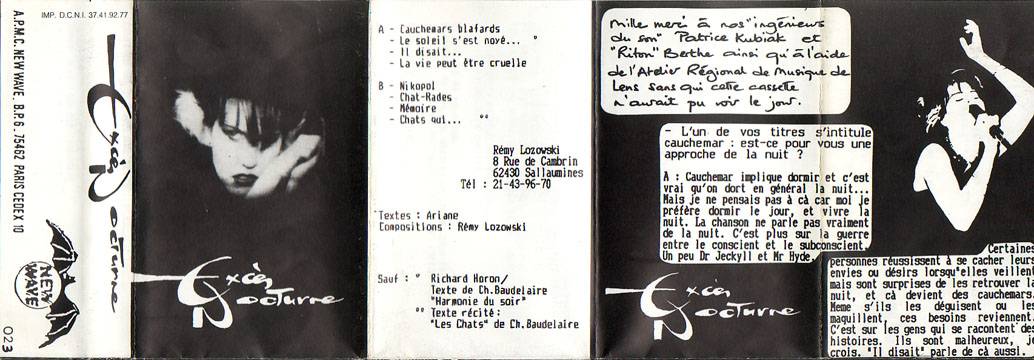 IMP. D.C.N.I. 37.41.92.77
A.P.M.C. NEW WAVE. B.P. 6. 75462 PARIS CEDEX 10
Excès Nocturne
NEW
WAVE
023
Excès
Nocturne
A - Cauchemars blafards
- Le soleil s'est noyé... °
- Il disait...
- La vie peut être cruelle
B - Nikopol
- Chat-Rades
- Mémoire
- Chats qui... °°
Rémy Lozowski
8 Rue de Cambrin
62430 Sallaumines
Tél : 21-43-96-70
Textes : Ariane
Compositions : Rémy Lozowski
Sauf : ° Richard Horon/
Texte de Ch.Baudelaire
"Harmonie du soir"
°° Texte récité:
"Les Chats" de Ch.Baudelaire
Mille merci à nos "ingénieurs
du son" Patrice Kubiak et
"Riton" Berthe ainsi qu'à l'aide
de l'Atelier Régional de Musique de
Lens sans qui cette cassette
n'aurait pu voir le jour.
- L'un de vos titres s'intitule
cauchemar : est-ce pour vous une
approche de la nuit ?
A : Cauchemar implique dormir et c'est
vrai qu'on dort en général la nuit...
Mais je ne pensais pas à cà car moi je
préfère dormir le jour, et vivre la
nuit. La chanson ne parle pas vraiment
de la nuit. C'est plus sur la guerre
entre le conscient et le subconscient.
Un peu Dr Jeckyll et Mr Hyde.
Certaines
personnes réussissent à se cacher leurs
envies ou désirs lorsqu'elles veillent
mais sont surprises de les retrouver la
nuit, et cà devient des cauchemars.
Meme s'ils les déguisent ou les
maquillent, ces besoins reviennent.
C'est sur les gens qui se racontent des
histoires. Ils sont malheureux, je
crois. "Il disait" parle de cà aussi.
Excès
Nocturne